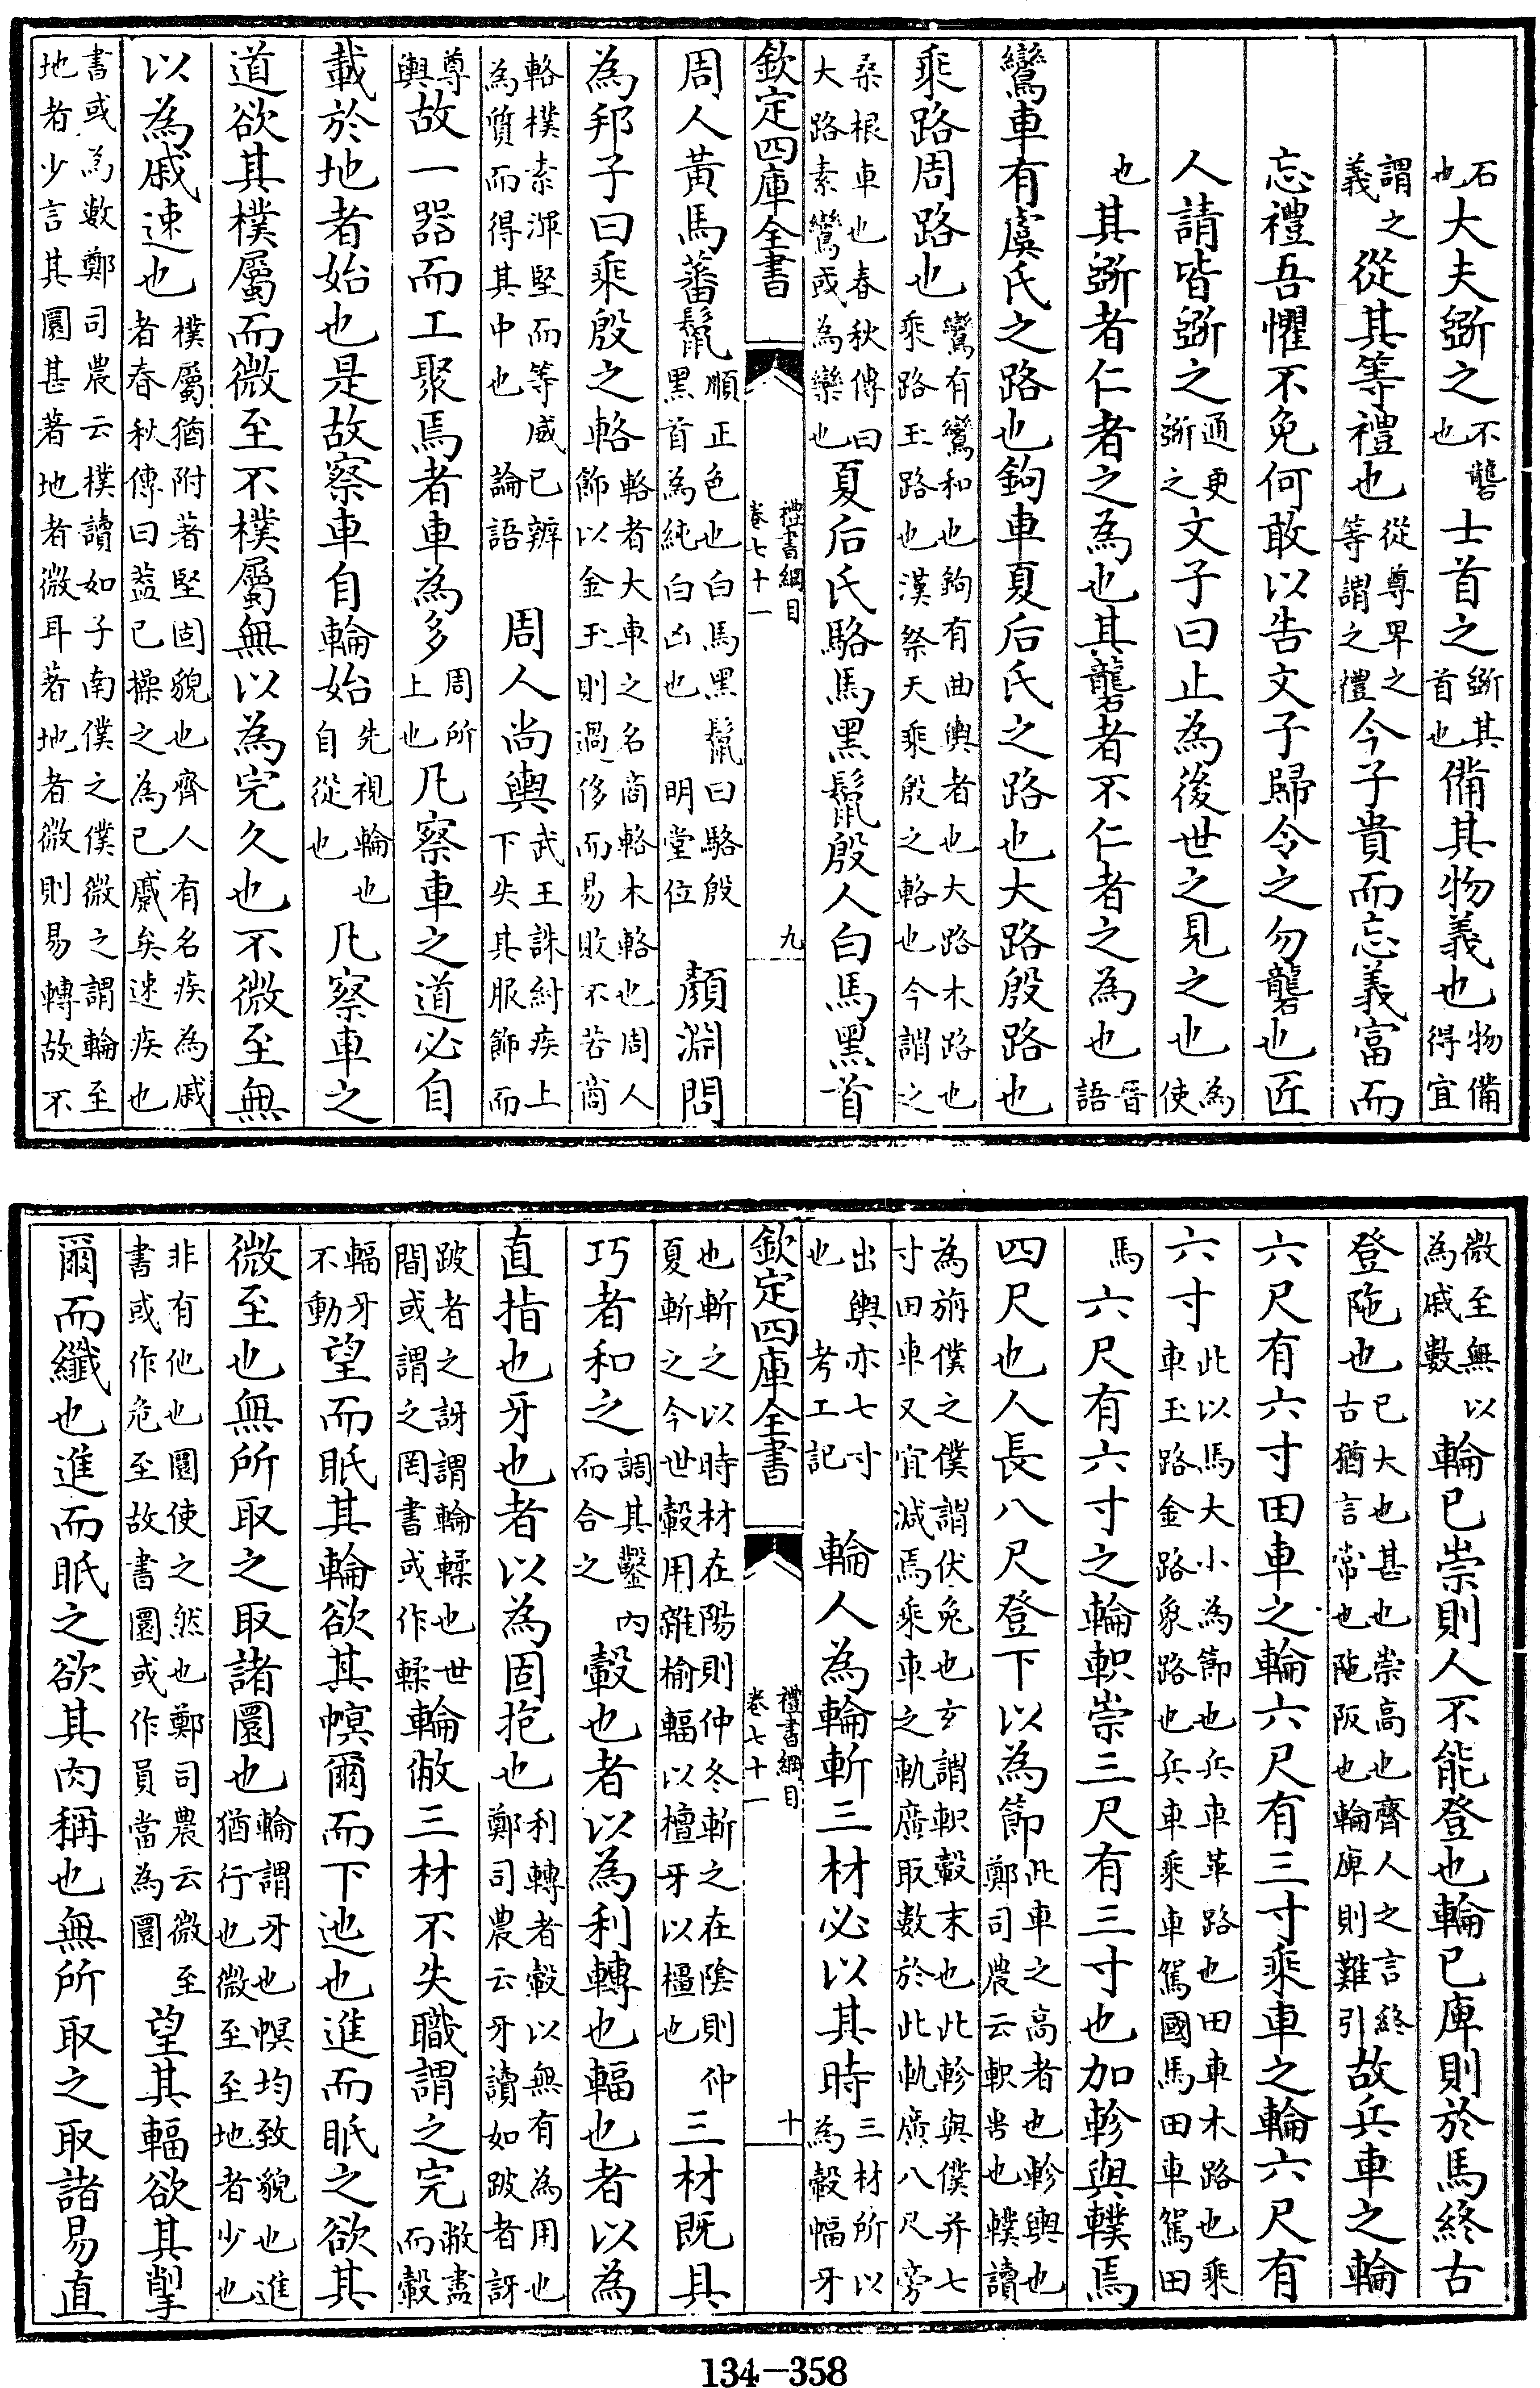 石也大夫斲之不礱也士首之斲其首也備其物義也物備得宜
謂之義從其等禮也從尊卑之等謂之禮今子貴而忘義富而
忘禮吾懼不免何敢以告文子歸令之勿礱也匠
人請皆斲之通更斲之文子曰止為後世之見之也為使
也其斲者仁者之為也其礱者不仁者之為也晉語
鸞車有虞氏之路也鉤車夏后氏之路也大路殷路也
乘路周路也鸞有鸞和也鉤有曲輿者也大路木路也乘路玉路也漢祭天乘殷之輅也今謂之
桑根車也春秋傳曰大路素鸞或為欒也夏后氏駱馬黑鬛殷人白馬黑首
欽定四庫全書 禮書綱目 卷七十一 九
周人黃馬蕃鬛順正色也白馬黑鬛曰駱殷黑首為純白凶也明堂位 顏淵問
為邦子曰乘殷之輅輅者大車之名商輅木輅也周人飾以金玉則過侈而易敗不若商
輅樸素渾堅而等威已辨為質而得其中也論語 周人尚輿武王誅紂疾上下失其服飾而
尊輿故一器而工聚焉者車為多周所上也凡察車之道必自
載於地者始也是故察車自輪始先視輪也自從也凡察車之
道欲其樸屬而微至不樸屬無以為完久也不微至無
以為戚速也樸屬猶附著堅固貌也齊人有名疾為戚者春秋傳曰葢已操之為已慼矣速疾也
書或為數鄭司農云樸讀如子南僕之僕微之謂輪至地者少言其圜甚著地者微耳著地者微則易轉故不
微至無以為戚數輪已崇則人不能登也輪已庳則於馬終古
登阤也已大也甚也崇高也齊人之言終古猶言常也阤阪也輪庳則難引故兵車之輪
六尺有六寸田車之輪六尺有三寸乘車之輪六尺有
六寸此以馬大小為節也兵車革路也田車木路也乘車玉路金路象路也兵車乘車駕國馬田車駕田
馬六尺有六寸之輪軹崇三尺有三寸也加軫與轐焉
四尺也人長八尺登下以為節此車之高者也軫輿也鄭司農云軹軎也轐讀
為旃僕之僕謂伏兔也玄謂軹轂末也此軫與僕并七寸田車又宜減焉乘車之軌廣取數於此軌廣八尺旁
出輿亦七寸也考工記 輪人為輪斬三材必以其時三材所以為轂輻牙
欽定四庫全書 禮書綱目 卷七十一 十
也斬之以時材在陽則仲冬斬之在陰則仲夏斬之今世轂用雜榆輻以檀牙以橿也三材既具
巧者和之調其鑿內而合之轂也者以為利轉也輻也者以為
直指也牙也者以為固抱也利轉者轂以無有為用也鄭司農云牙讀如跛者訝
跛者之訝謂輪輮也世間或謂之罔書或作輮輪敝三材不失職謂之完敝盡而轂
輻牙不動望而眡其輪欲其幎爾而下迆也進而眡之欲其
微至也無所取之取諸圜也輪謂牙也幎均致貌也進猶行也微至至地者少也
非有他也圜使之然也鄭司農云微至書或作危至故書圜或作員當為圜望其輻欲其揱
爾而纖也進而眡之欲其肉稱也無所取之取諸易直
134—358